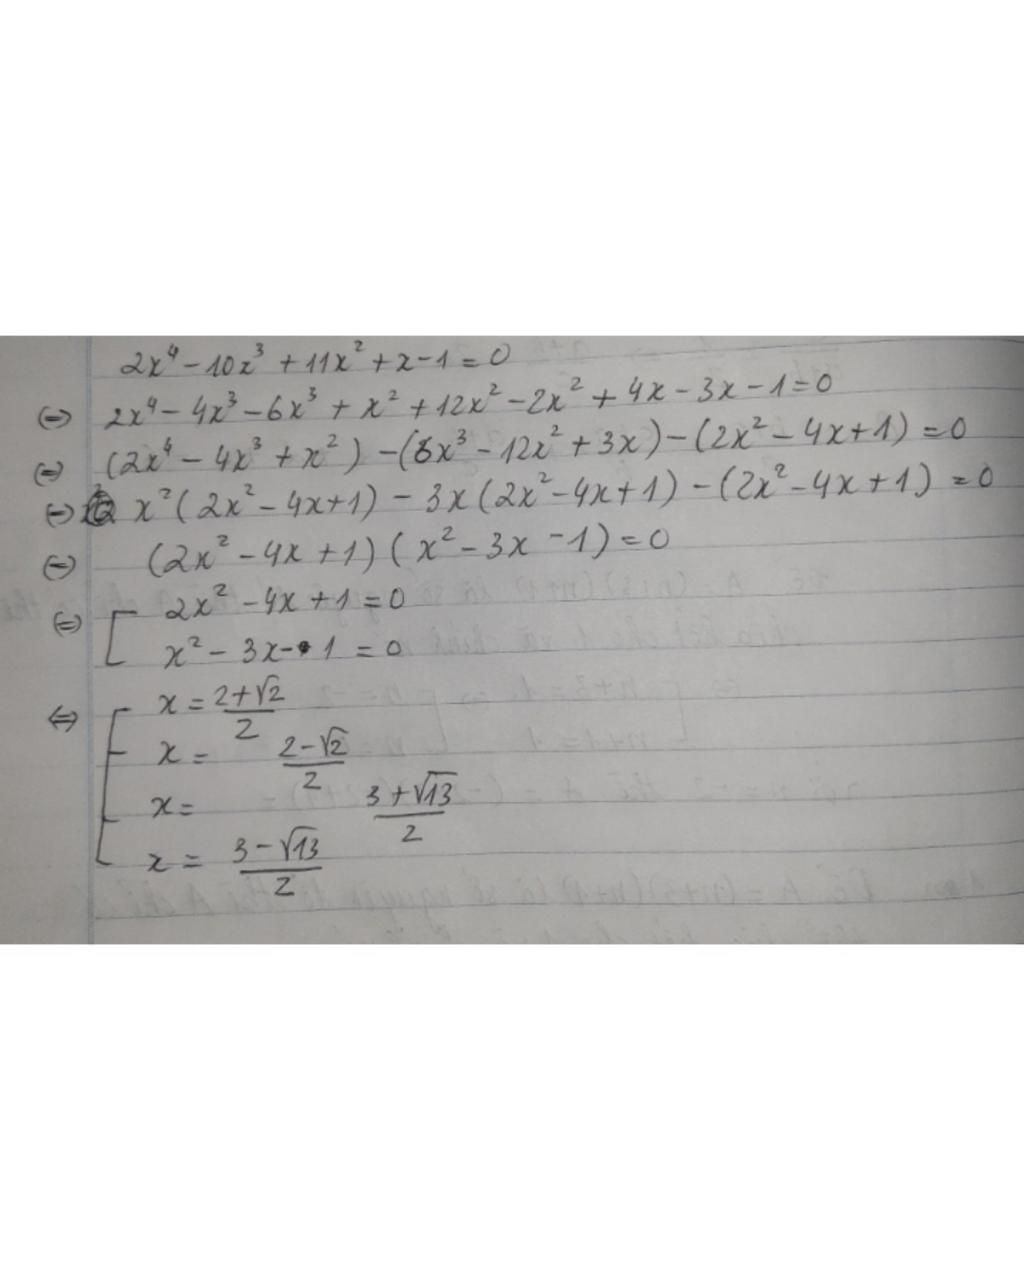 2x⁴ - 10x³ + 11x² + x - 1 = 0
(=) 2x⁴ - 4x³ - 6x³ + x² + 12x² - 2x² + 4x - 3x - 1 = 0
(=) (2x⁴ - 4x³ + x²) - (6x³ - 12x² + 3x) - (2x² - 4x + 1) = 0
(=) x² (2x² - 4x + 1) - 3x (2x² - 4x + 1) - (2x² - 4x + 1) = 0
(=) (2x² - 4x + 1) (x² - 3x - 1) = 0
(=) [ 2x² - 4x + 1 = 0
x² - 3x - 1 = 0
⇔ [ x = (2+√2)/2
x = (2-√2)/2
x = (3+√13)/2
x = (3-√13)/2